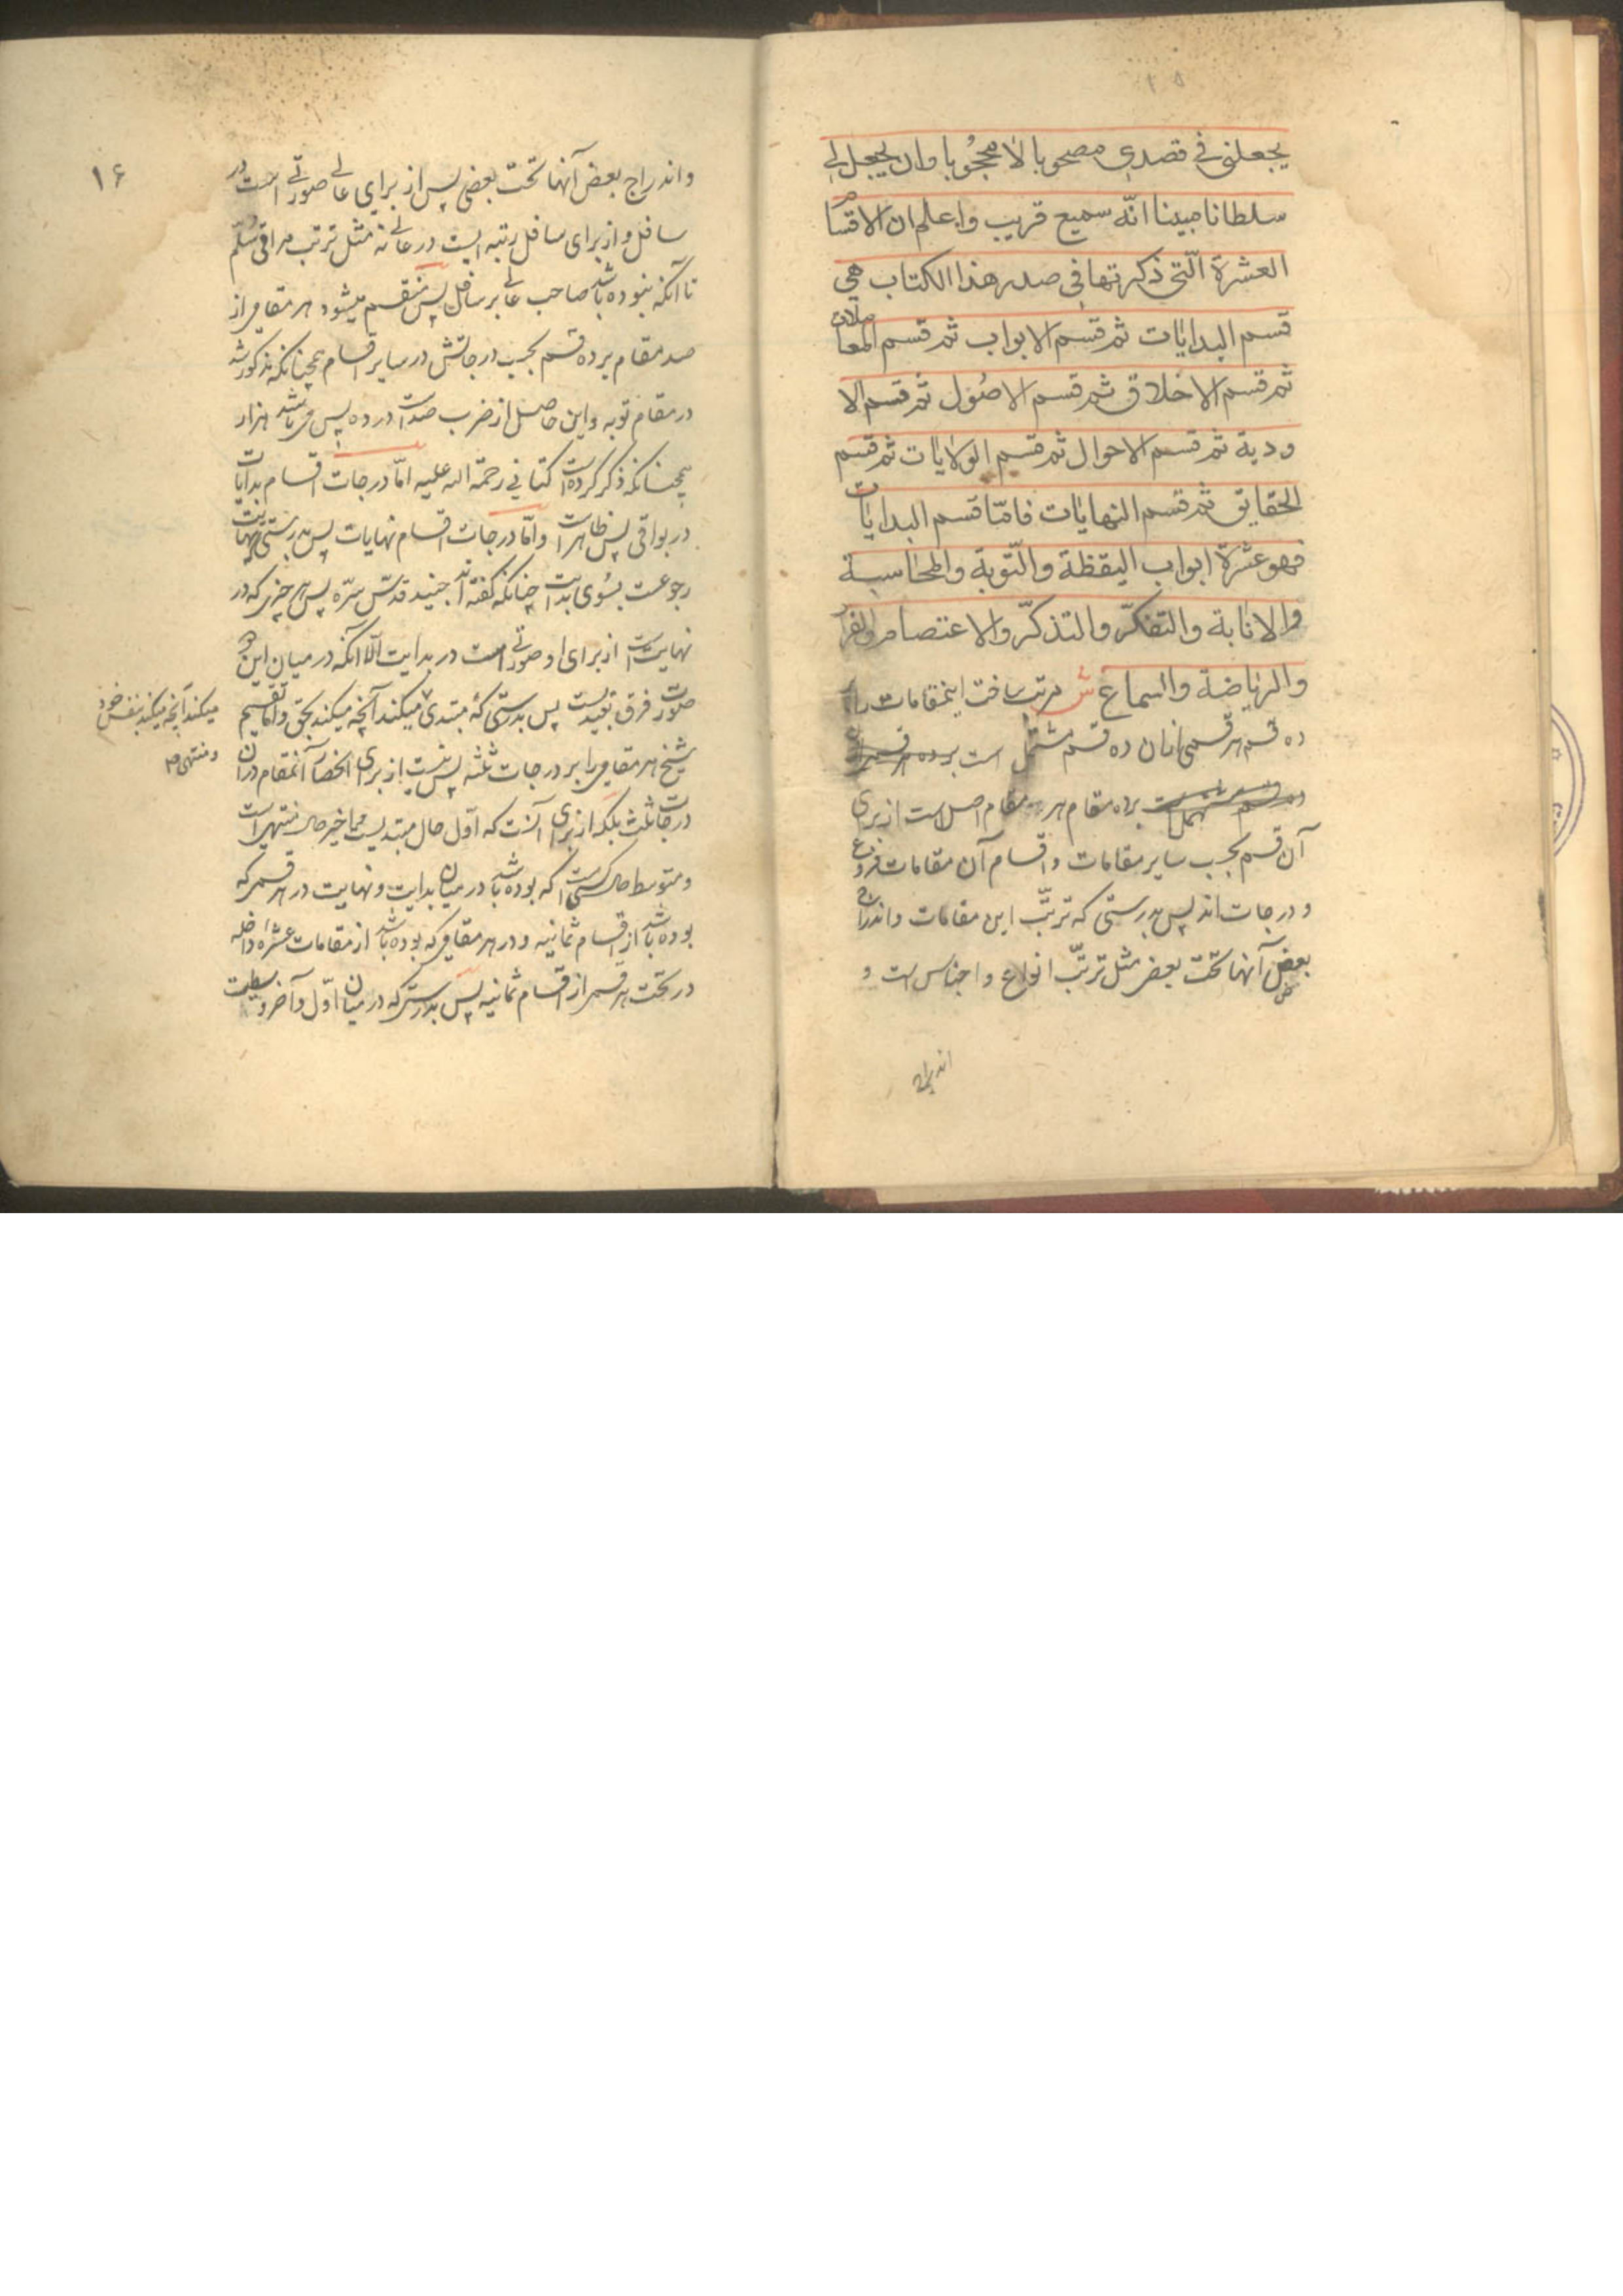 ۱۵
یجعلنی فی قصدی مصحوبا لا محجوبا وان یجعل لی
سلطانا مبینا انّه سمیع قریب واعلم ان الاقسام
العشرة الّتی ذکرتها فی صدر هذا الکتاب هی
قسم البدایات ثم قسم الابواب ثم قسم المعاملات
ثم قسم الاخلاق ثم قسم الاصول ثم قسم الا
ودیة ثم قسم الاحوال ثم قسم الولایات ثم قسم
الحقایق ثم قسم النهایات فامّا قسم البدایات
فهو عشرة ابواب الیقظة والتّوبة والمحاسبة
والانابة والتفکّر والتذکّر والاعتصام والفرار
والریاضة والسماع ش مرتب ساخت اینمقامات را بر
ده قسم هر قسمی ازان ده قسم مشتمل است
برده مقام هر مقام اصل است از برای
آن قسم بحسب سایر مقامات و اقسام آن مقامات فروع
و درجات اند پس بدرستی که ترتّب این مقامات واندراج
بعض آنها تحت بعض مثل ترتّب انواع و اجناس است و
اندراج
۱۶
واندراج بعض آنها تحت بعضی پس از برای عالی صورتی است در
سافل و از برای سافل رتبه ایست در عالی نه مثل ترتب مراقی سُلّم
تا آنکه نبوده باشد صاحب عالی بر سافل پس منقسم میشود هر مقامی از
صد مقام برده قسم بحسب درجاتش در سایر اقسام همچنانکه مذکور شد
در مقام توبه و این حاصل از ضرب صد است در ده پس می باشد هزار
همچنانکه ذکر کرده است کتانی رحمة الله علیه امّا درجات اقسام بدایات
در بواقی پس ظاهر است و امّا درجات اقسام نهایات پس بدرستی که نهایت
رجوعست بسُوی بدایت چنانکه گفته اند جنید قدّس سرّه پس هر چیزی که در
نهایت است از برای او صورتی است در بدایت الّا آنکه در میان این دو
صورت فرق بقیدیست پس بدرستی که مبتدی میکند آنچه میکند بحق و امّا تقسیم
میکند آنچه میکند بنفس خود
و منتهی صح
شیخ هر مقامی را بر درجات ثلثه پس نیست از برای انحصار آنمقام در آن
درجات ثلث بلکه از برای آنست که اوّل حال مبتدیست و اخیر حال منتهی است
و متوسط حال کسیست که بوده باشد در میان بدایت و نهایت در هر قسمی که
بوده باشد از اقسام ثمانیه و در هر مقامی که بوده باشد از مقامات عشرهٔ داخله
در تحت هر قسمی از اقسام ثمانیه پس بدرستی که در میان اوّل و آخر وسطیست